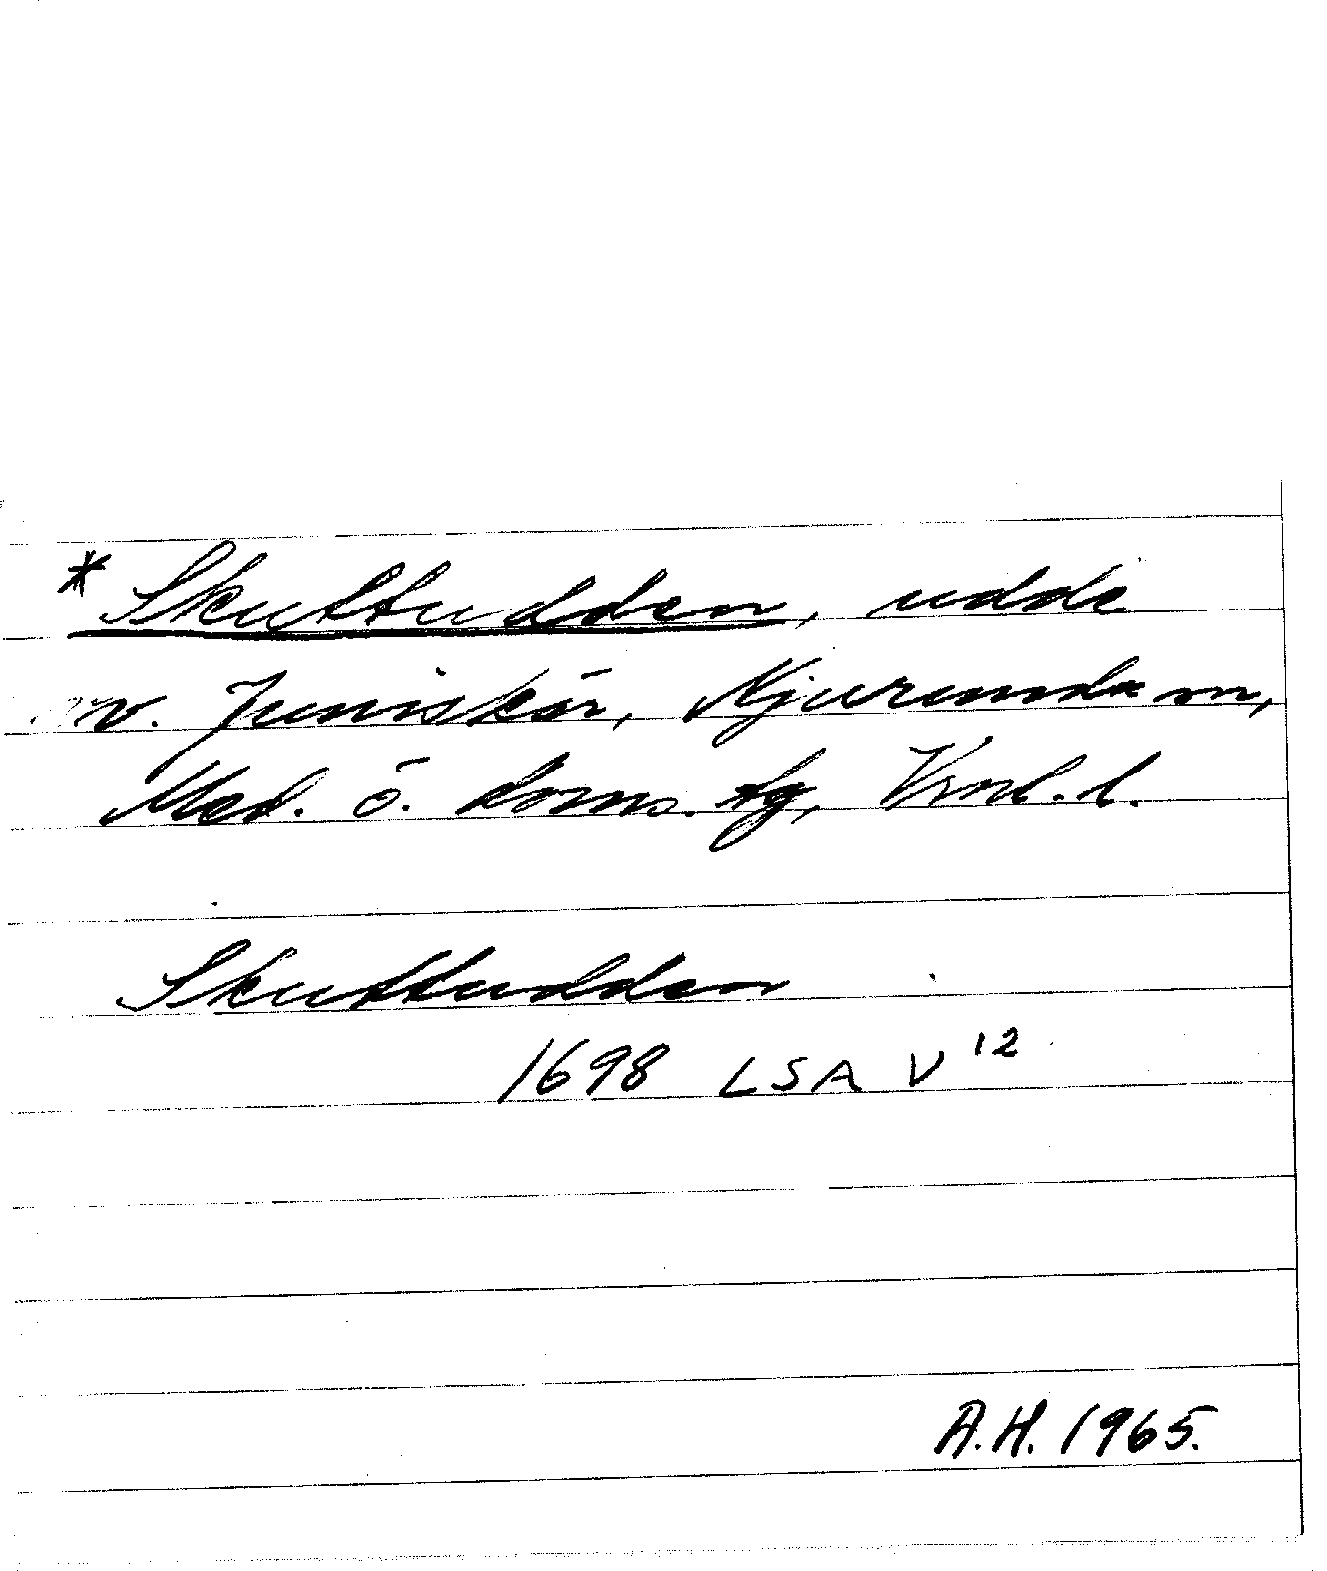 * Skuttudden, udde
v. Juniskär, Njurunda sn,
Med. ö. doms. tg, Vnl. l.
Skuttudden
1698 LSA V 12
A.H. 1965.